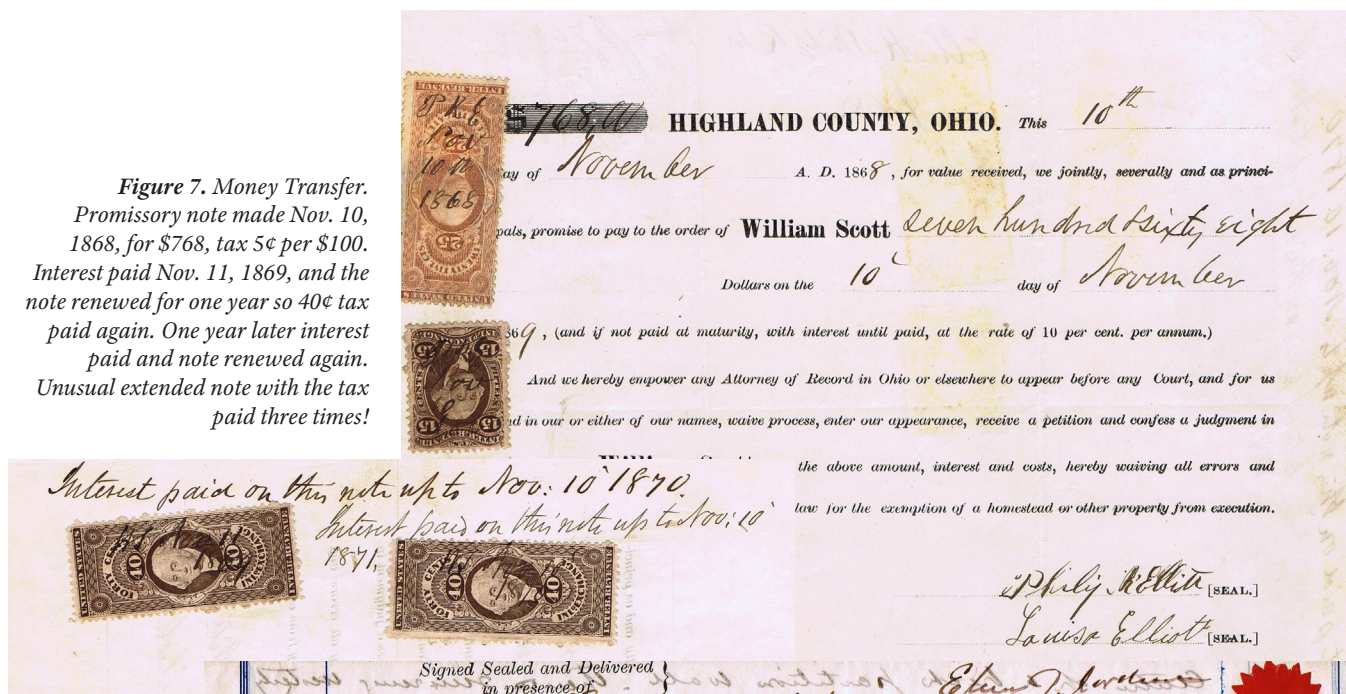 Figure 7. Money Transfer.
Promissory note made Nov. 10,
1868, for $768, tax 5¢ per $100.
Interest paid Nov. 11, 1869, and the
note renewed for one year so 40¢ tax
paid again. One year later interest
paid and note renewed again.
Unusual extended note with the tax
paid three times!
$768.00 HIGHLAND COUNTY, OHIO. This 10th
ay of November A. D. 1868, for value received, we jointly, severally and as princi-
pals, promise to pay to the order of William Scott seven hundred & sixty eight
Dollars on the 10 day of November
869, (and if not paid at maturity, with interest until paid, at the rate of 10 per cent. per annum.)
And we hereby empower any Attorney of Record in Ohio or elsewhere to appear before any Court, and for us
d in our or either of our names, waive process, enter our appearance, receive a petition and confess a judgment in
the above amount, interest and costs, hereby waiving all errors and
law for the exemption of a homestead or other property from execution.
P K E
Nov
10
1868
25
15 15
Nov
15 15
Interest paid on this note up to Nov: 10 1870.
Interest paid on this note up to Nov: 10
1871,
UNITED STATES FORTY CENTS 40 40 INTER.EXCHANGE
Nov 11
UNITED STATES FORTY CENTS 40 40 INTER.EXCHANGE
Philip K Elliott [SEAL.]
Louisa Elliott [SEAL.]
Signed Sealed and Delivered
in presence of